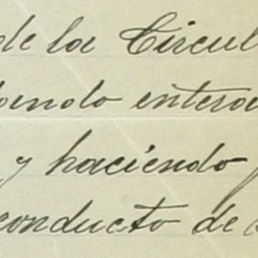 de la Circul
bando entera
y haciendo
conducto de